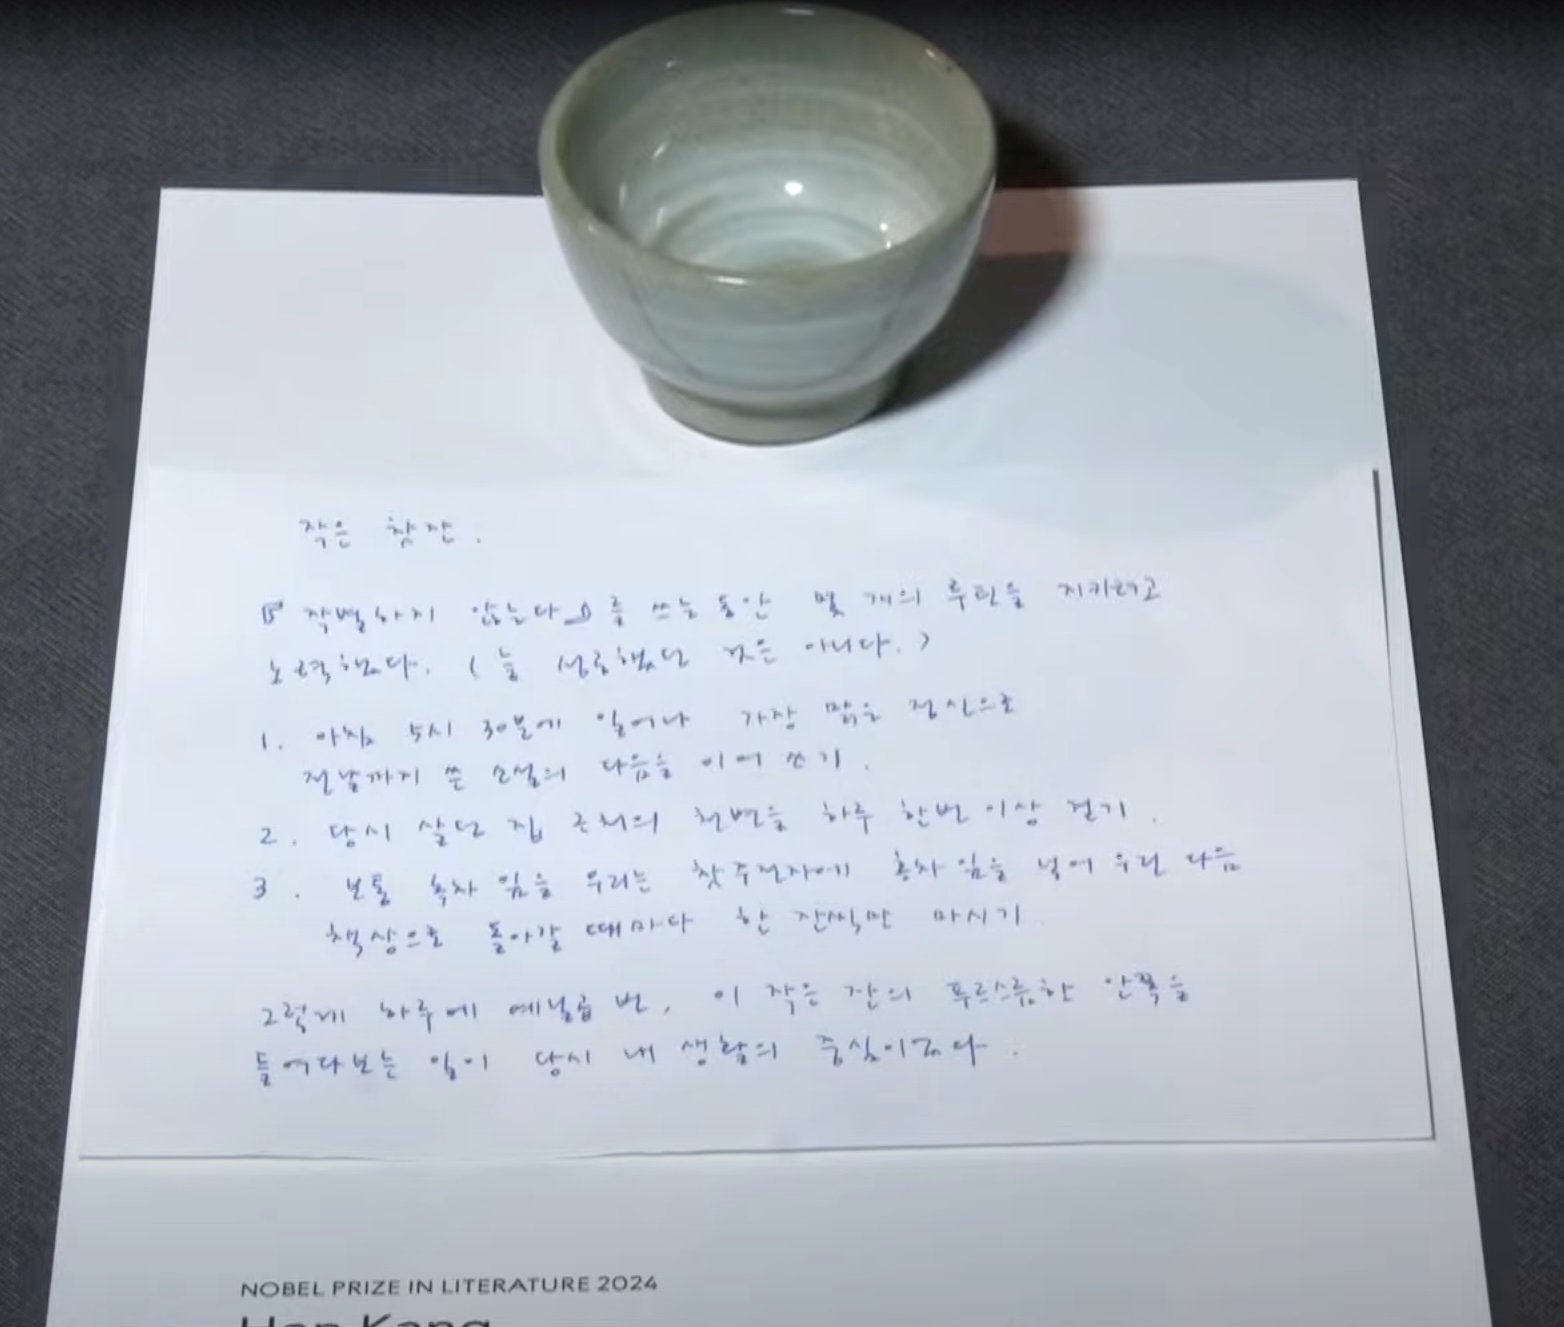 작은 찻잔.
『작별하지 않는다』를 쓰는 동안 몇 개의 루틴을 지키려고
노력했다. (늘 성공했던 것은 아니다.)
1. 아침 5시 30분에 일어나 가장 맑은 정신으로
전날까지 쓴 소설의 다음을 이어 쓰기.
2. 당시 살던 집 근처의 천변을 하루 한번 이상 걷기.
3. 보통 녹차 잎을 우리는 찻주전자에 홍차잎을 넣어 우린 다음
책상으로 돌아갈 때마다 한 잔씩만 마시기.
그렇게 하루에 예닐곱 번, 이 작은 잔의 푸르스름한 안쪽을
들여다보는 일이 당시 내 생활의 중심이었다.
NOBEL PRIZE IN LITERATURE 2024
Han Kang